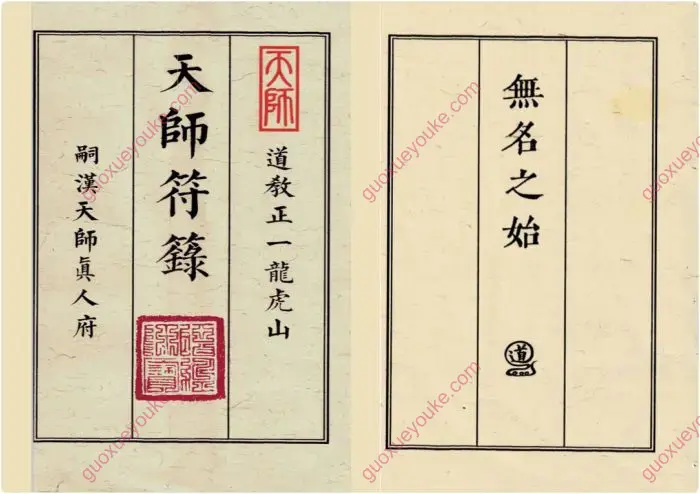 天師
道教正一龍虎山
天師符籙
嗣漢天師眞人府
無名之始
道
guoxueyouke.com
guoxueyouke.com
guoxueyouke.com
guoxueyouke.com